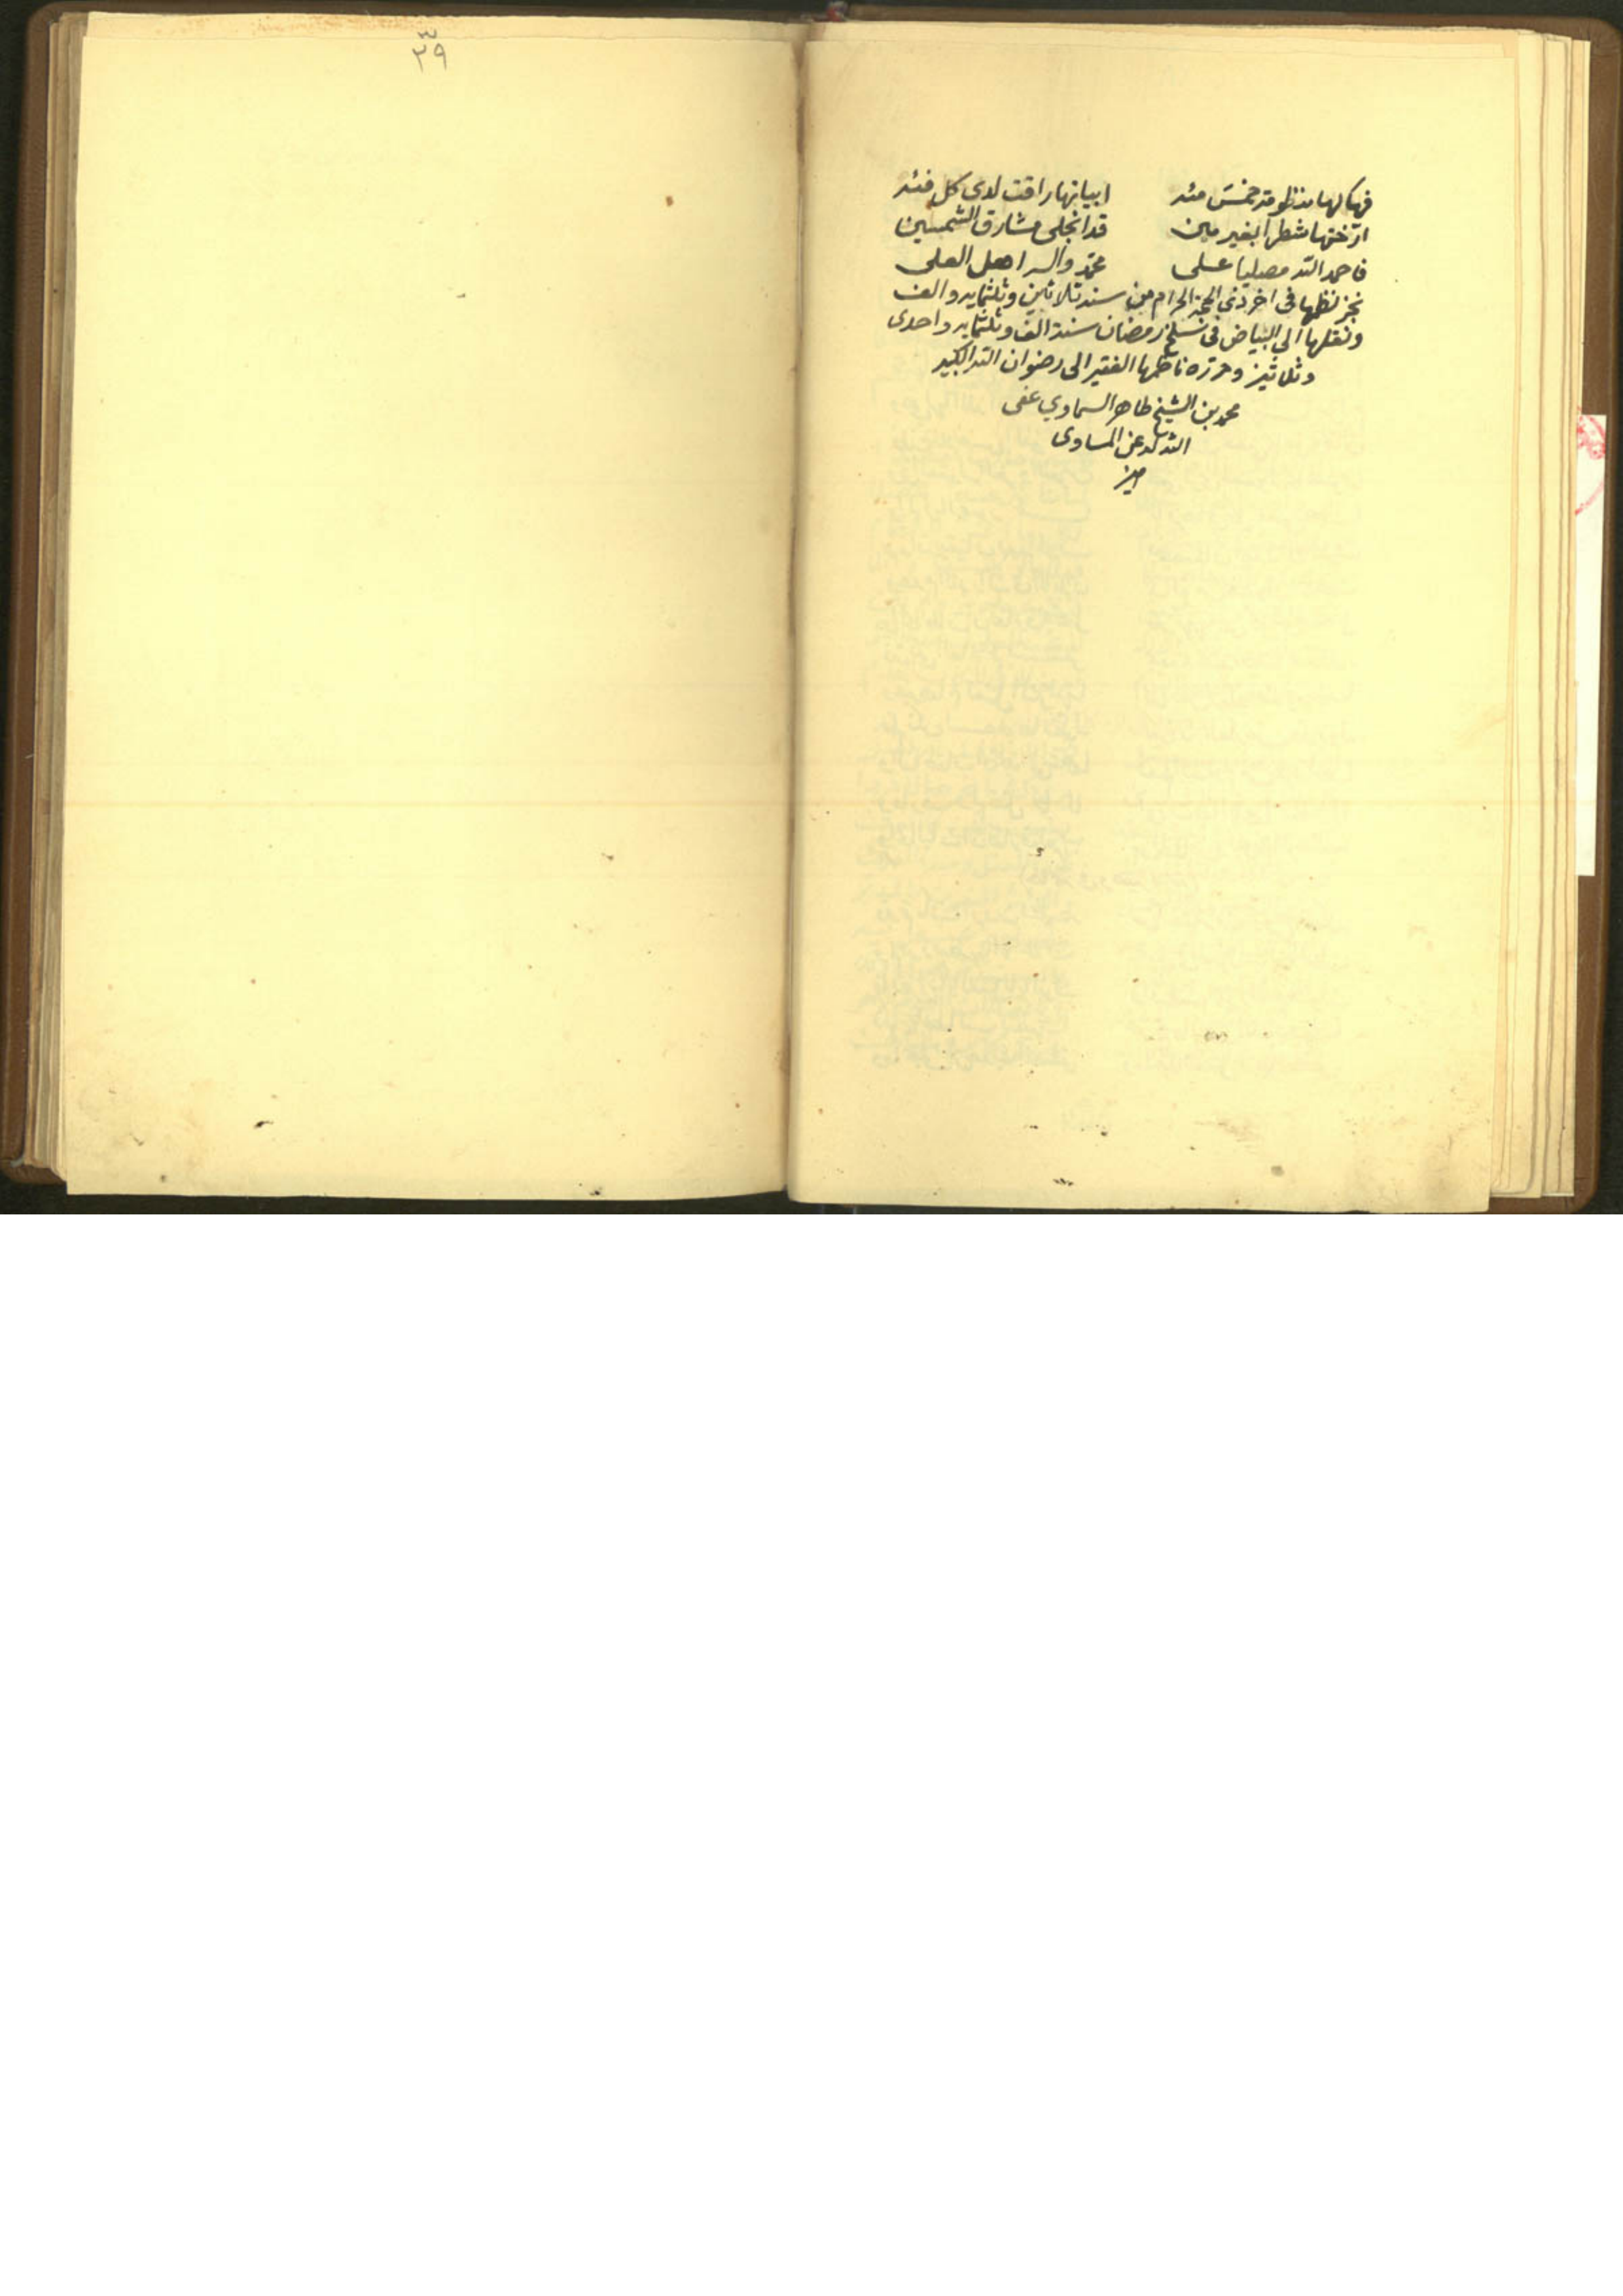 فهاكها منظومة خمس مئه ابياتها راقت لدى كل فئه
ارختها شطرا بغير مين قد انجلى مشارق الشمسين
فاحمد الله مصليا على محمد واله اهل العلى
نجز نظمها فى اخر ذي الحجة الحرام من سنة ثلاثين وثلثمايه والف
ونقلها الى البياض فى سلخ رمضان سنة الف وثلثمايه واحدى
وثلاثين وحرره ناظمها الفقير الى رضوان الله الكبير
محمد بن الشيخ طاهر السماوي عفى
الله له عن المساوى
امين
٣
٢٩